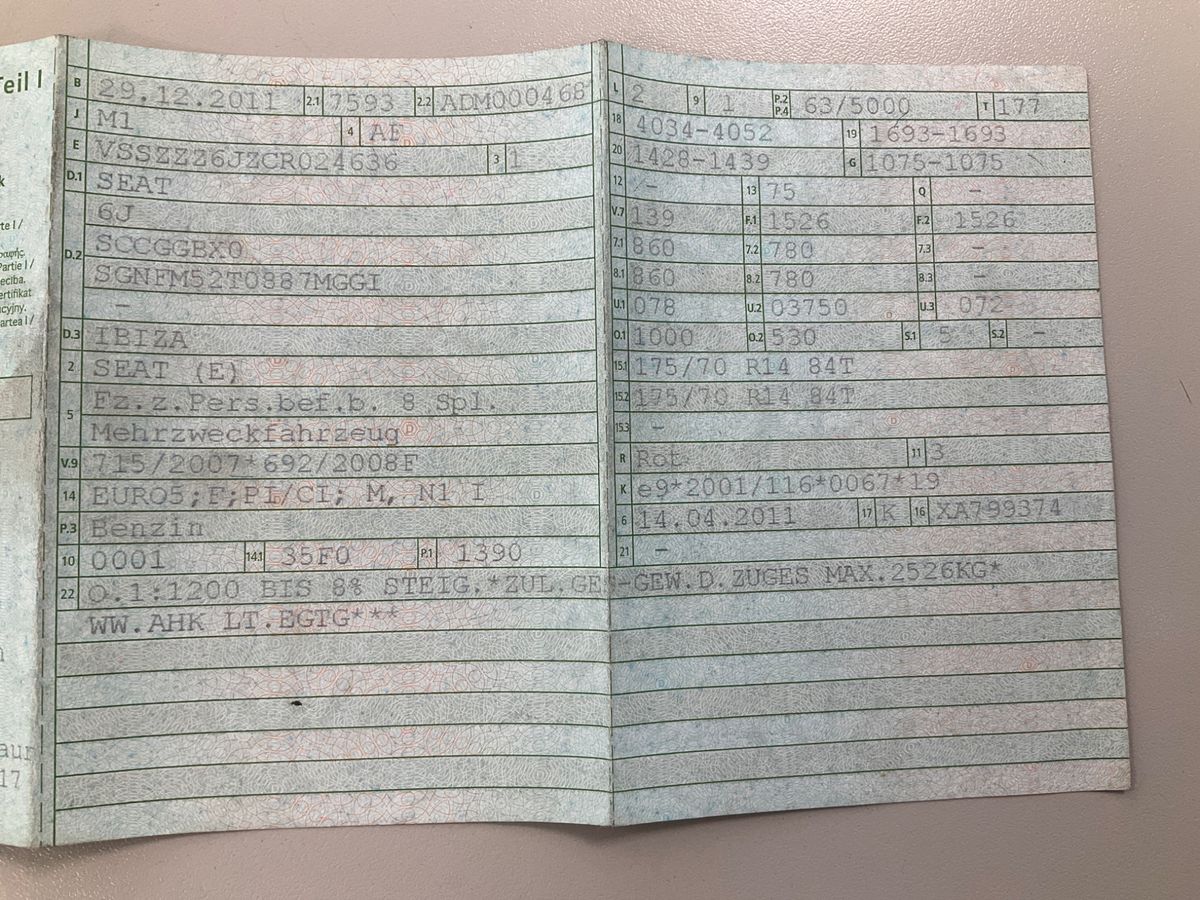 Teil I
k
rte I /
Partie I /
ecība.
ertifikat
cyjny.
artea I /
n
aur
17
B 29.12.2011 2.1 7593 2.2 ADM000468
J M1 4 AF
E VSSZZZ6JZCR024636 3 1
D.1 SEAT
6J
D.2 SCCGGBX0
SGNFM52T0887MGGI
–
D.3 IBIZA
2 SEAT (E)
5 Fz.z.Pers.bef.b. 8 Spl.
Mehrzweckfahrzeug
V.9 715/2007*692/2008F
14 EURO5;F;PI/CI; M, N1 I
P.3 Benzin
10 0001 14.1 35F0 P.1 1390
L 2 9 1 P.2 P.4 63/5000 T 177
18 4034-4052 19 1693-1693
20 1428-1439 G 1075-1075
12 ⁄– 13 75 Q –
V.7 139 F.1 1526 F.2 1526
7.1 860 7.2 780 7.3 –
8.1 860 8.2 780 8.3 –
U.1 078 U.2 03750 U.3 072
O.1 1000 O.2 530 S.1 5 S.2 –
15.1 175/70 R14 84T
15.2 175/70 R14 84T
15.3 –
R Rot 11 3
K e9*2001/116*0067*19
6 14.04.2011 17 K 16 XA799374
21 –
22 O.1:1200 BIS 8% STEIG.*ZUL.GES-GEW.D.ZUGES MAX.2526KG*
WW.AHK LT.EGTG***